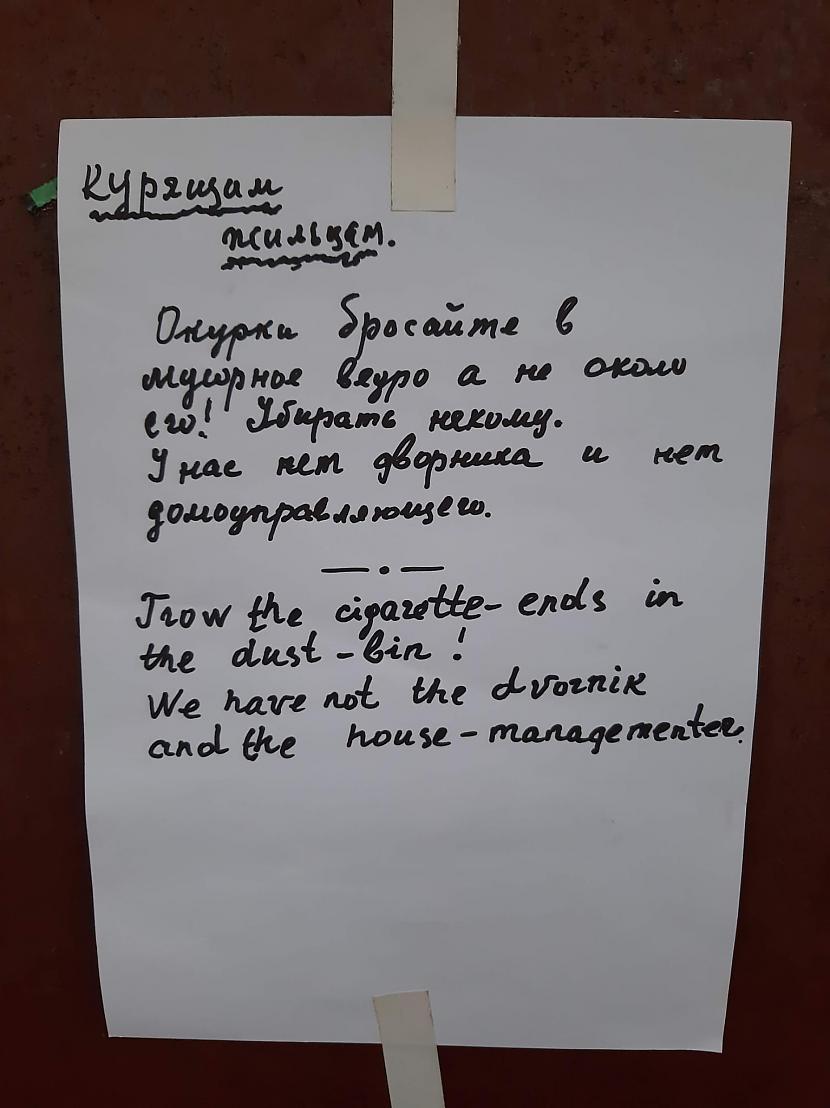 Курящам
жильцам.
Окурки бросайте в
мусорное ведро а не около
его! Убирать некому.
У нас нет дворника и нет
домоуправляющего.
— . —
Trow the cigarette-ends in
the dust-bin!
We have not the dvornik
and the house-managementer.